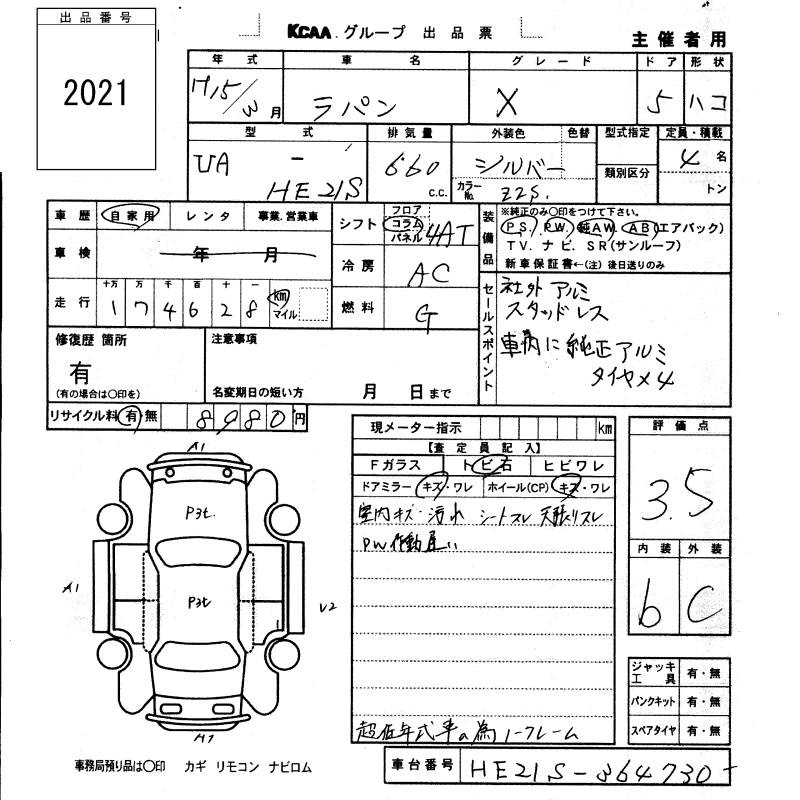 出品番号
2021
KCAA グループ 出品票
主催者用
年式 車名 グレード ドア 形状
H15/3月 ラパン X 5 ハコ
型式 排気量 外装色 色替 型式指定 定員・積載
UA - HE21S 660 c.c. シルバー 類別区分 4名
カラーNo. Z2S. トン
車歴 自家用 レンタ 事業・営業車
シフト フロア コラム パネル 4AT
装備品 ※純正のみ○印をつけて下さい。
PS. PW. 純AW. AB(エアバック)
TV. ナビ. SR(サンルーフ)
新車保証書←(注)後日送りのみ
車検 年 月
冷房 AC
走行 十万 万 千 百 十 一
174628 km マイル
燃料 G
セールスポイント
社外アルミ
スタッドレス
車内に純正アルミ
タイヤ×4
修復歴 箇所
有
(有の場合は○印を)
注意事項
名変期日の短い方 月 日まで
リサイクル料 有 無 8980円
現メーター指示 km
【査定員記入】
Fガラス トビ石 ヒビワレ
ドアミラー キズ・ワレ ホイール(CP) キズ・ワレ
室内キズ・汚れ シートスレ 天張りスレ
PW作動遅い
超低年式車の為ノークレーム
評価点
3.5
内装 外装
b C
A1
P3t.
A1
P3t
U2
A1
ジャッキ工具 有・無
パンクキット 有・無
スペアタイヤ 有・無
事務局預り品は○印 カギ リモコン ナビロム
車台番号 HE21S-364730-